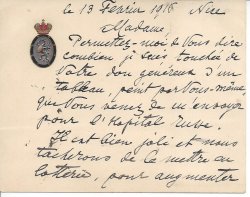 le 13 Fevrier 1916 Nice
Madame,
Permettez-moi de Vous dire
combien je suis touchée de
Votre don généreux d'un
tableau, peint par Vous-même,
que Vous venez de m'envoyer
pour l'Hôpital Russe.
Il est bien joli et nous
tâcherons de le mettre en
lotterie, pour augmenter